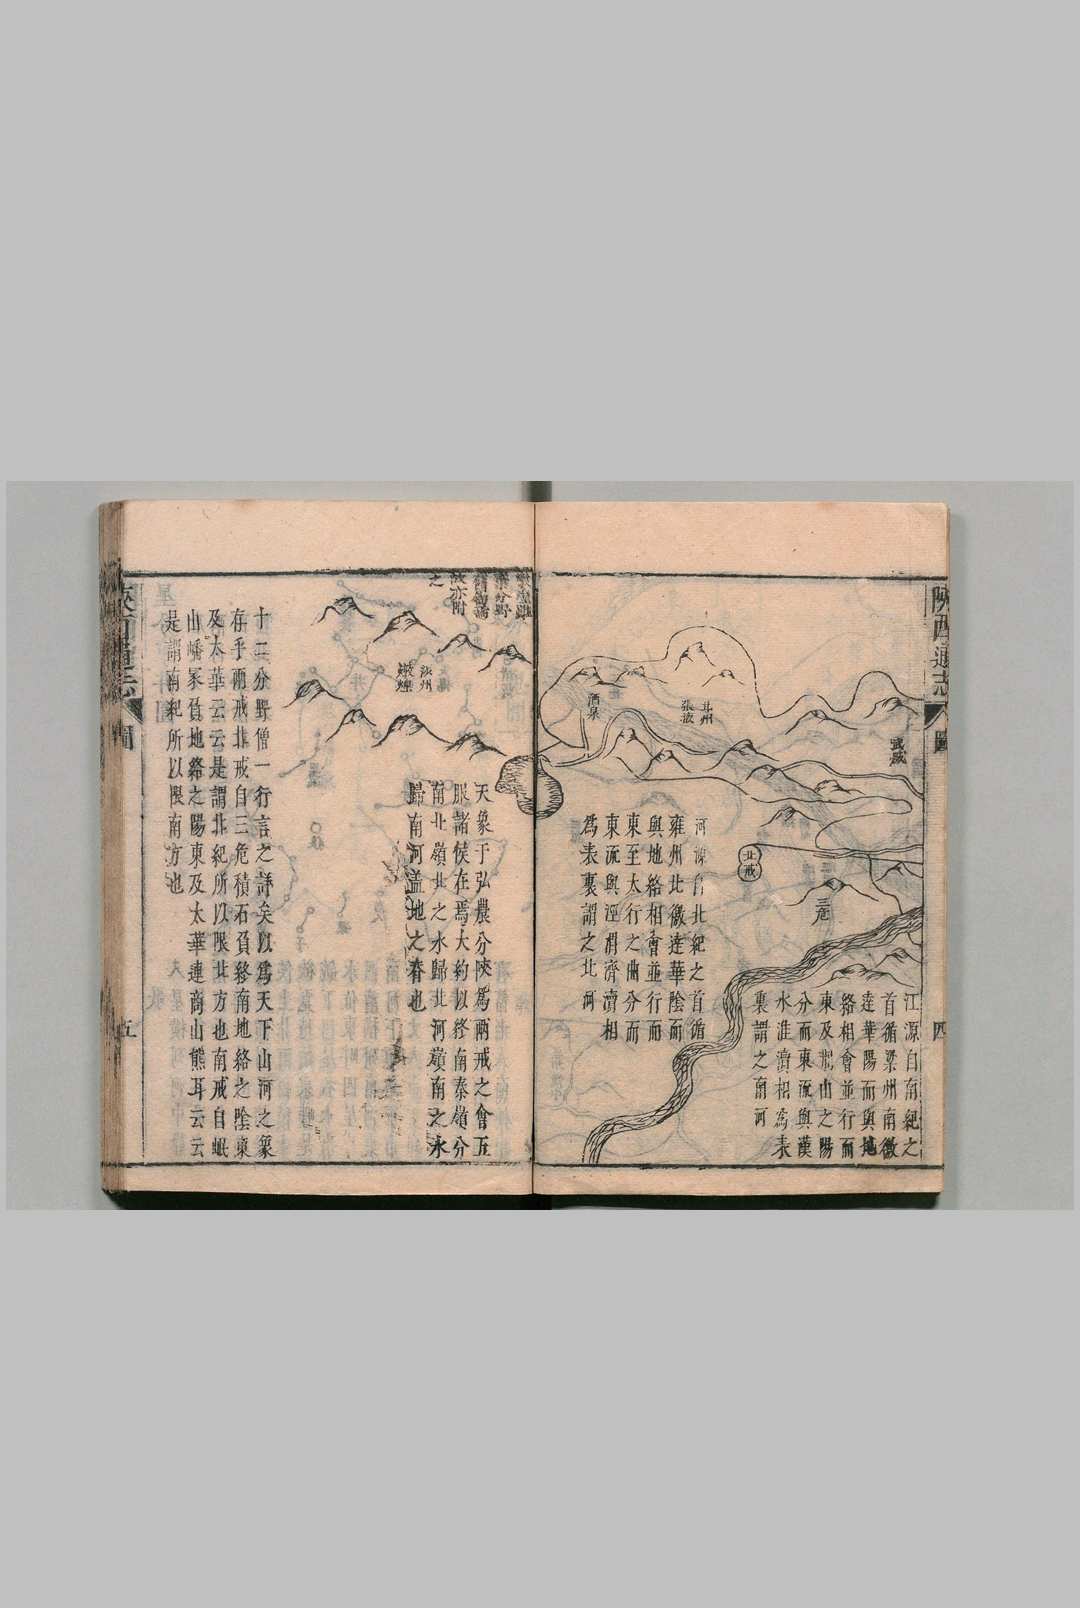 陝西通志
圖
四
武威
甘州
張掖
酒泉
北戒
三危
江源自南紀之
首循梁州南徼
達華陽而與地
絡相會並行而
東及荊山之陽
分而東流與漢
水淮瀆相為表
裏謂之南河
河源自北紀之首循
雍州北徼達華陰而
與地絡相會並行而
東至太行之曲分而
東流與涇渭濟瀆相
為表裏謂之北河
故亦附
之
沙州
燉煌
天象于弘農分陝為兩戒之會五
服諸侯在焉大約以終南秦嶺分
南北嶺北之水歸北河嶺南之水
歸南河蓋地之脊也
十二分野僧一行言之詳矣以為天下山河之象
存乎兩戒北戒自三危積石負終南地絡之陰東
及太華云云是謂北紀所以限北方也南戒自岷
山嶓冢負地絡之陽東及太華連商山熊耳云云
是謂南紀所以限南方也
陝西通志
圖
五